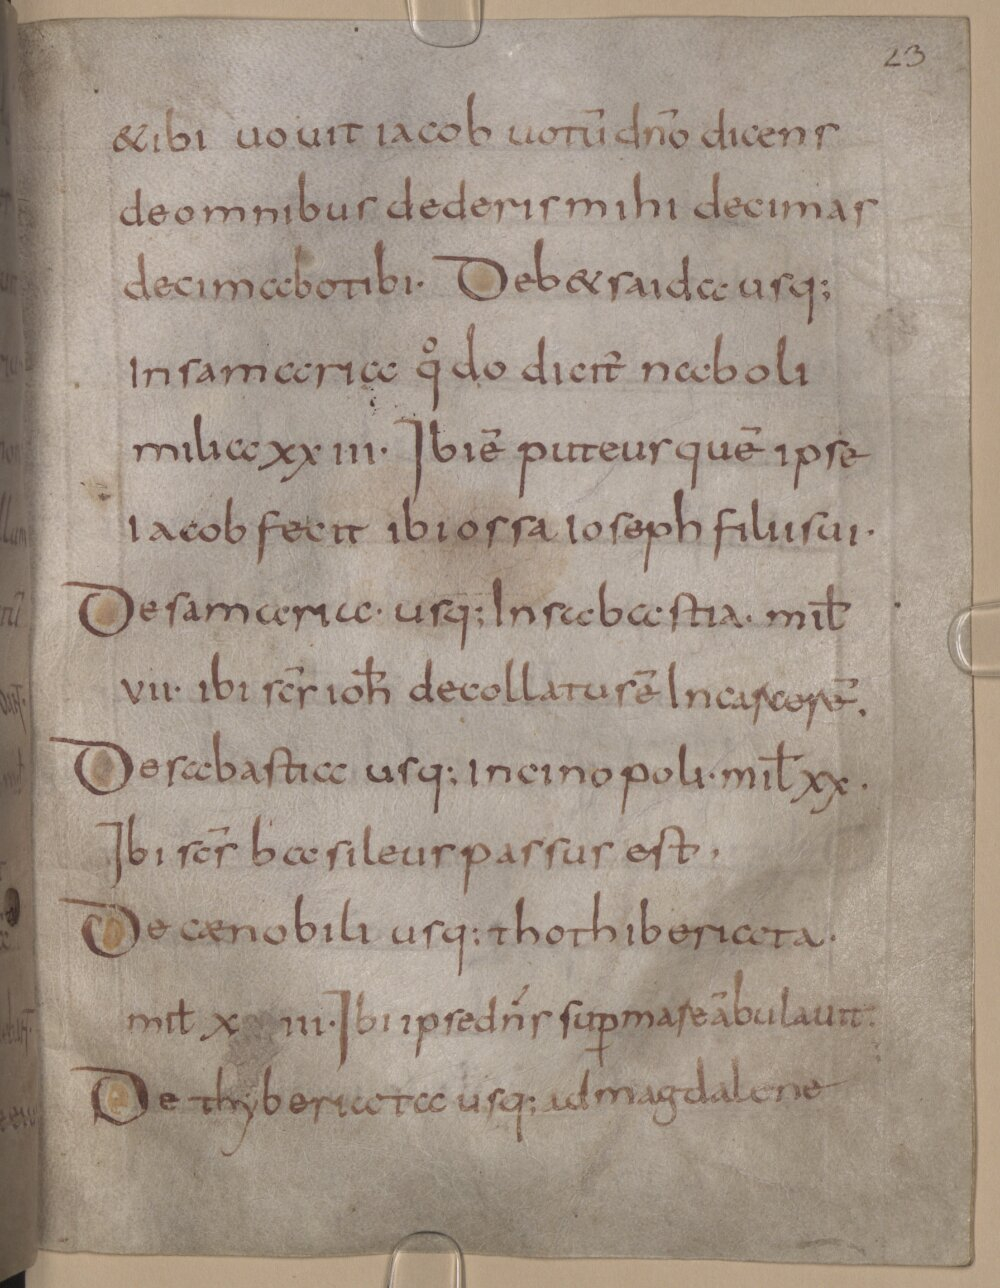 23
&ibi uouit iacob uotū dn̄o dicens
deomnibus dederismihi decimas
decimabotibi· Deb&saida usq;
Insamaria q̊do dicit̄ naboli
milia xxiii· Ibiē puteus quē ipse
Iacob fecit ibi ossa Ioseph filiisui·
Desamaria· usq; Insabastia· mil̄
vii· ibi sc̄s ioh̄ decollatusē Incarcerē.
Desabastia usq; incinopoli· mil̄ xx·
Ibi sc̄s basileus passus est·
De cænobili usq; thothiberiata·
mil̄ x iii· Ibi ipse dn̄s sup̱mareābulauit·
De thyberiata usq; admagdalene